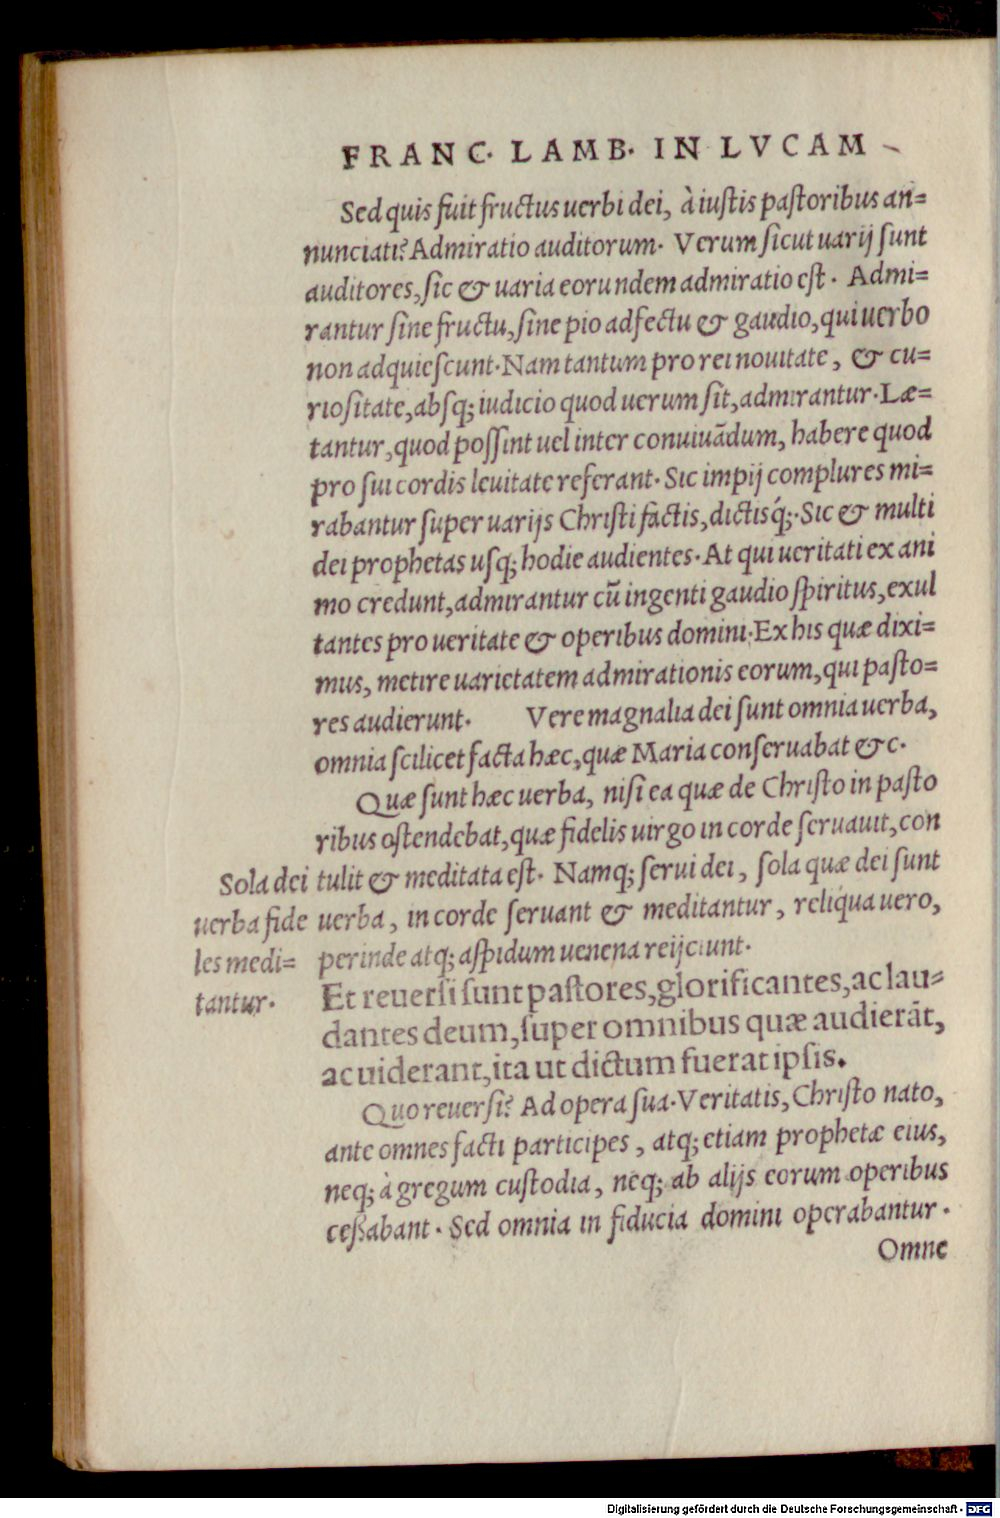 FRANC. LAMB. IN LVCAM
Sed quis fuit fructus uerbi dei, à iustis pastoribus an=
nunciati? Admiratio auditorum. Verum sicut uarij sunt
auditores, sic & uaria eorundem admiratio est. Admi=
rantur sine fructu, sine pio adfectu & gaudio, qui uerbo
non adquiescunt. Nam tantum pro rei nouitate, & cu=
riositate, absq; iudicio quod uerum sit, admirantur. Læ=
tantur, quod possint uel inter conuiuādum, habere quod
pro sui cordis leuitate referant. Sic impij complures mi=
rabantur super uarijs Christi factis, dictisq́;. Sic & multi
dei prophetas usq; hodie audientes. At qui ueritati ex ani
mo credunt, admirantur cū ingenti gaudio spiritus, exul
tantes pro ueritate & operibus domini. Ex his quæ dixi=
mus, metire uarietatem admirationis eorum, qui pasto=
res audierunt. Vere magnalia dei sunt omnia uerba,
omnia scilicet facta hæc, quæ Maria conseruabat &c.
Quæ sunt hæc uerba, nisi ea quæ de Christo in pasto
ribus ostendebat, quæ fidelis uirgo in corde seruauit, con
tulit & meditata est. Namq; serui dei, sola quæ dei sunt
uerba, in corde seruant & meditantur, reliqua uero,
perinde atq; aspidum uenena reijciunt.
Sola dei
uerba fide
les medi=
tantur.
Et reuersi sunt pastores, glorificantes, ac lau=
dantes deum, super omnibus quæ audierāt,
ac uiderant, ita ut dictum fuerat ipsis.
Quo reuersi? Ad opera sua. Veritatis, Christo nato,
ante omnes facti participes, atq; etiam prophetæ eius,
neq; à gregum custodia, neq; ab alijs eorum operibus
ceßabant. Sed omnia in fiducia domini operabantur.
Omne
Digitalisierung gefördert durch die Deutsche Forschungsgemeinschaft - DFG